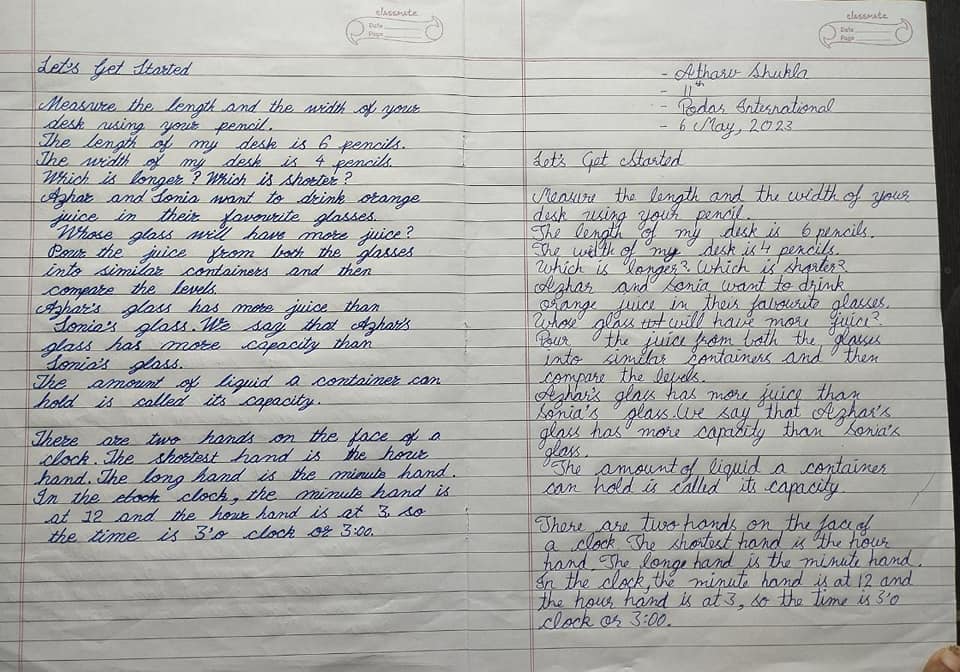 classmate
Date
Page
Let's Get Started
Measure the length and the width of your
desk using your pencil.
The length of my desk is 6 pencils.
The width of my desk is 4 pencils.
Which is longer? Which is shorter?
Azhar and Sonia want to drink orange
juice in their favourite glasses.
Whose glass will have more juice?
Pour the juice from both the glasses
into similar containers and then
compare the levels.
Azhar's glass has more juice than
Sonia's glass. We say that Azhar's
glass has more capacity than
Sonia's glass.
The amount of liquid a container can
hold is called its capacity.
There are two hands on the face of a
clock. The shortest hand is the hour
hand. The long hand is the minute hand.
In the clock, the minute hand is
at 12 and the hour hand is at 3, so
the time is 3'o clock or 3:00.
classmate
Date
Page
- Atharv Shukla
- 11th
- Podar International
- 6 May, 2023
Let's Get Started
Measure the length and the width of your
desk using your pencil.
The length of my desk is 6 pencils.
The width of my desk is 4 pencils.
Which is longer? Which is shorter?
Azhar and Sonia want to drink
orange juice in their favourite glasses.
Whose glass will have more juice?
Pour the juice from both the glasses
into similar containers and then
compare the levels.
Azhar's glass has more juice than
Sonia's glass. We say that Azhar's
glass has more capacity than Sonia's
glass.
The amount of liquid a container
can hold is called its capacity.
There are two hands on the face of
a clock. The shortest hand is the hour
hand. The longe hand is the minute hand.
In the clock, the minute hand is at 12 and
the hour hand is at 3, so the time is 3'o
clock or 3:00.